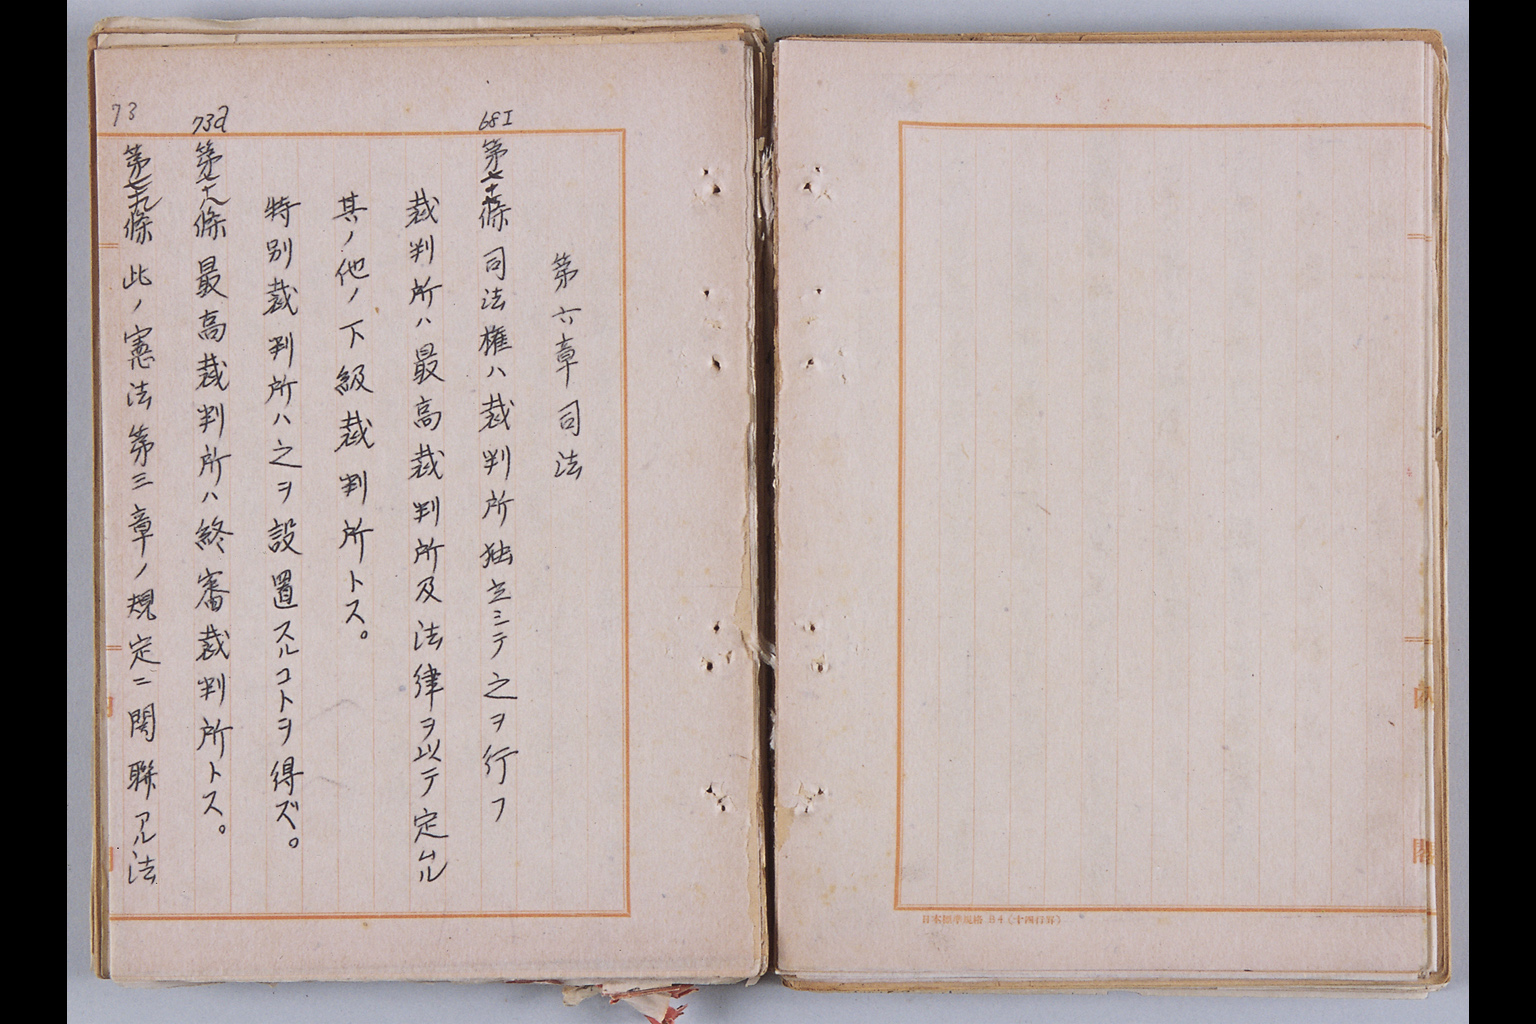 日本標準規格 B4(十四行界)
第六章 司法
68I
第七十七條 司法權ハ裁判所独立ミテ之ヲ行フ
裁判所ハ最高裁判所及法律ヲ以テ定ムル
其ノ他ノ下級裁判所トス。
特別裁判所ハ之ヲ設置スルコトヲ得ズ。
73a
第七十八條 最高裁判所ハ終審裁判所トス。
73
第七十九條 此ノ憲法第三章ノ規定ニ関聯アル法